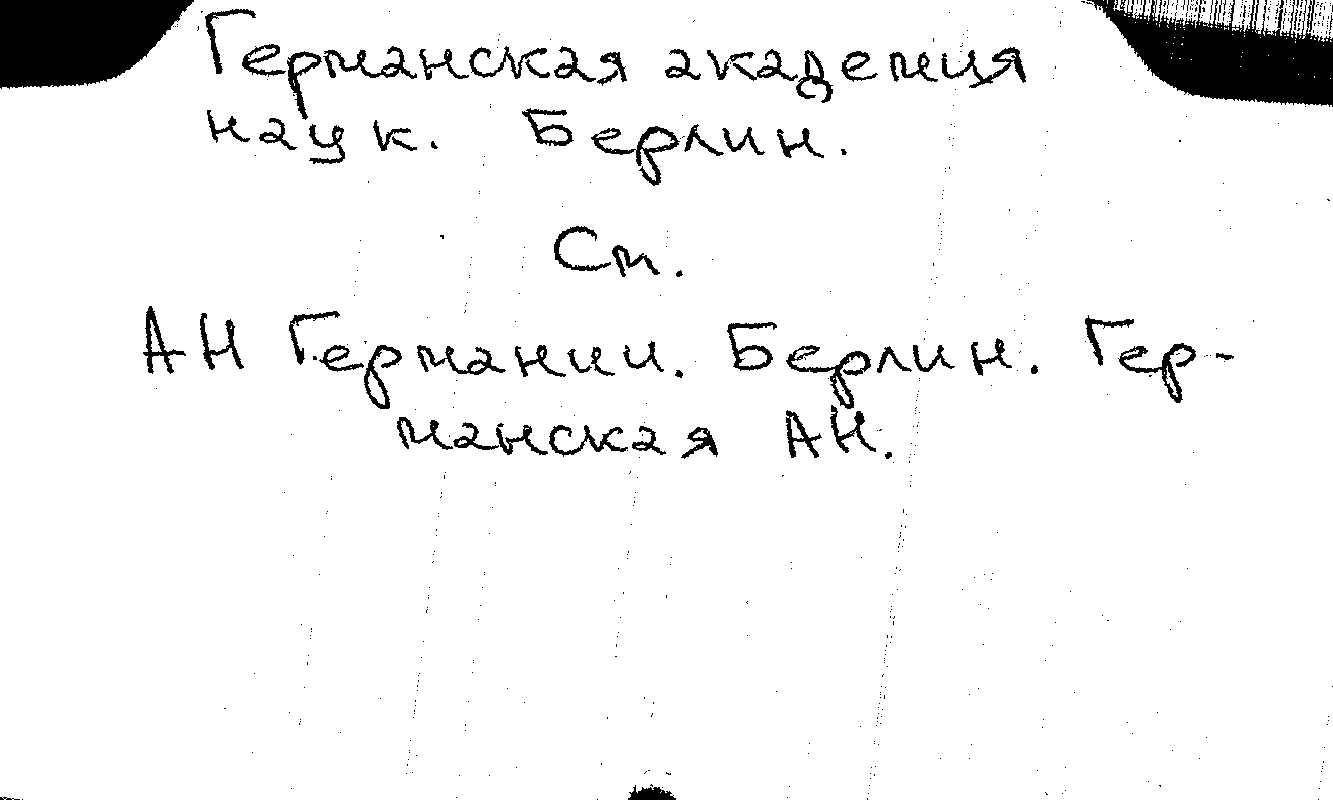 Германская академия
наук. Берлин.
См.
АН Германии. Берлин. Гер-
манская АН.